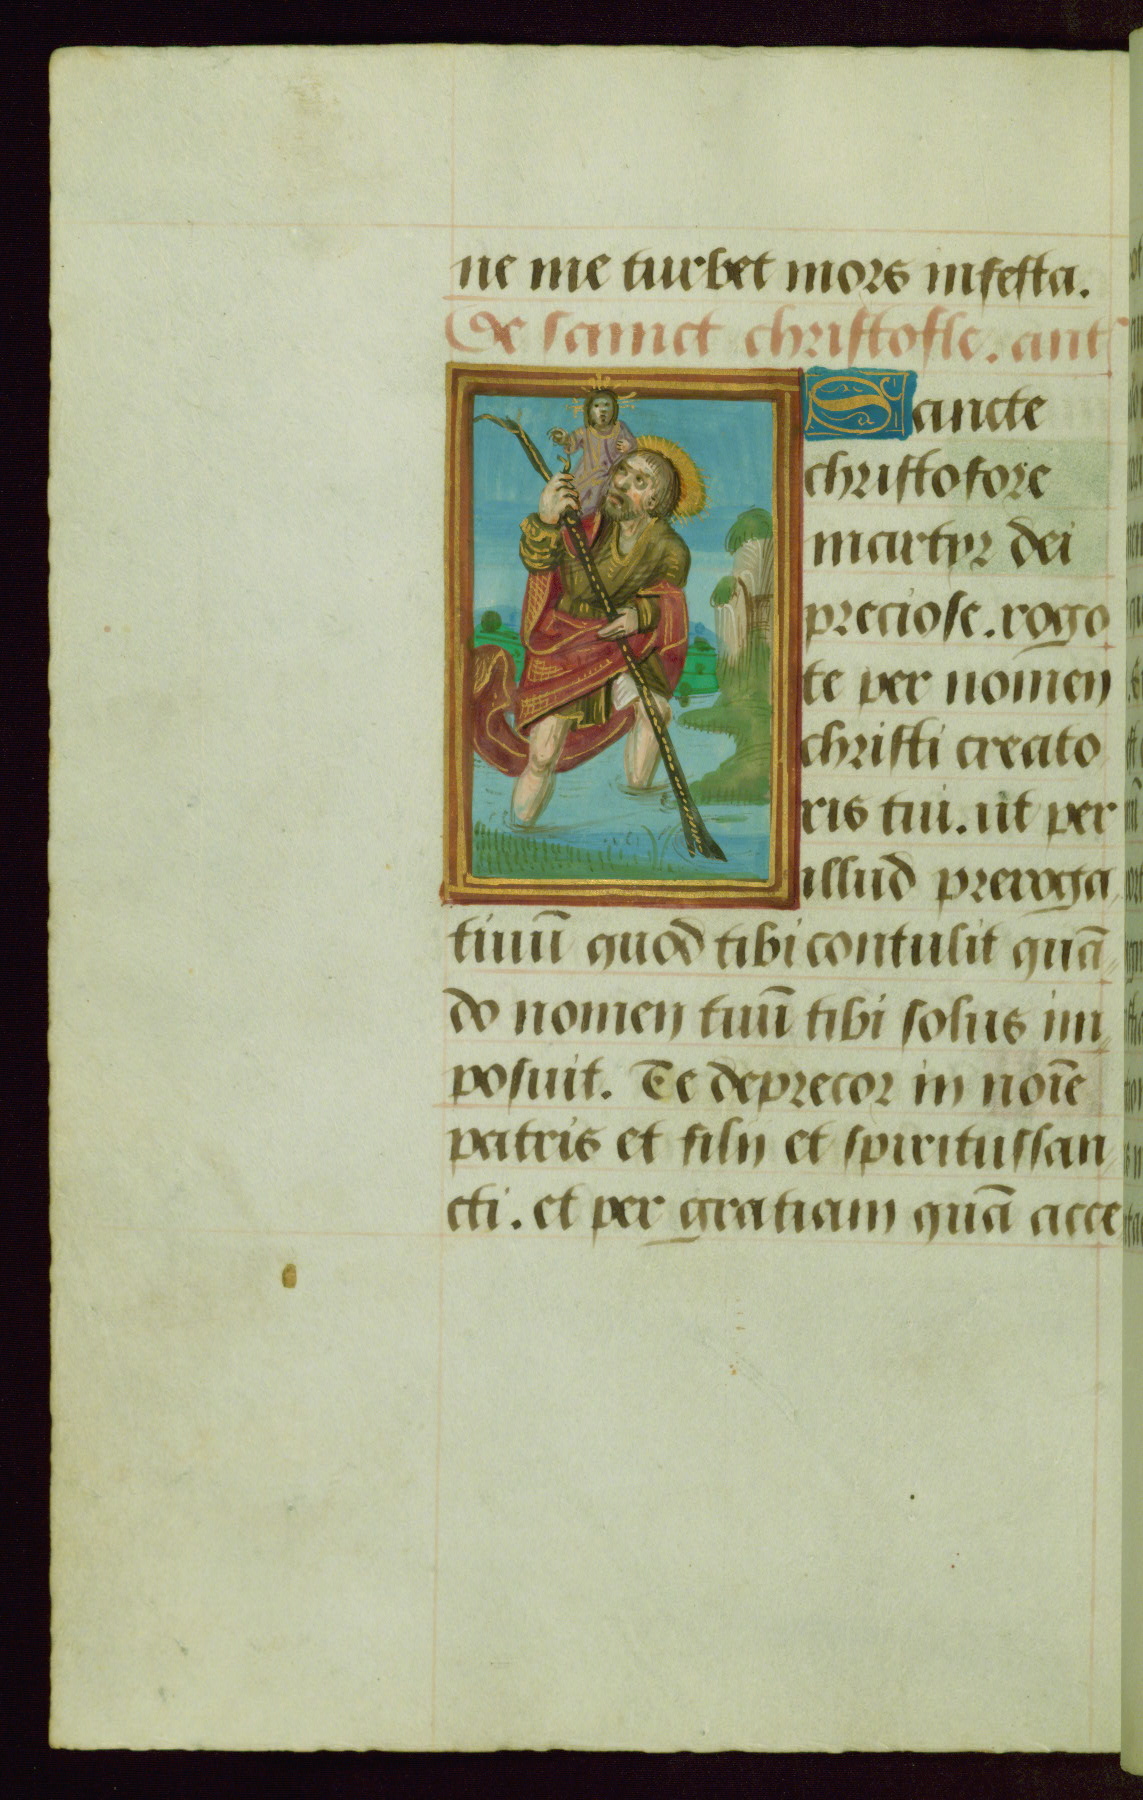 ne me turbet mors infesta.
De sainct christofle. ant
Sancte
christofore
martyr dei
preciose. rogo
te per nomen
christi creato
ris tui. ut per
illud preroga
tiuū quod tibi contulit quā
do nomen tuū tibi solus im
posuit. Te deprecor in noīe
patris et filij et spiritussan
cti. et per gratiam quā acce